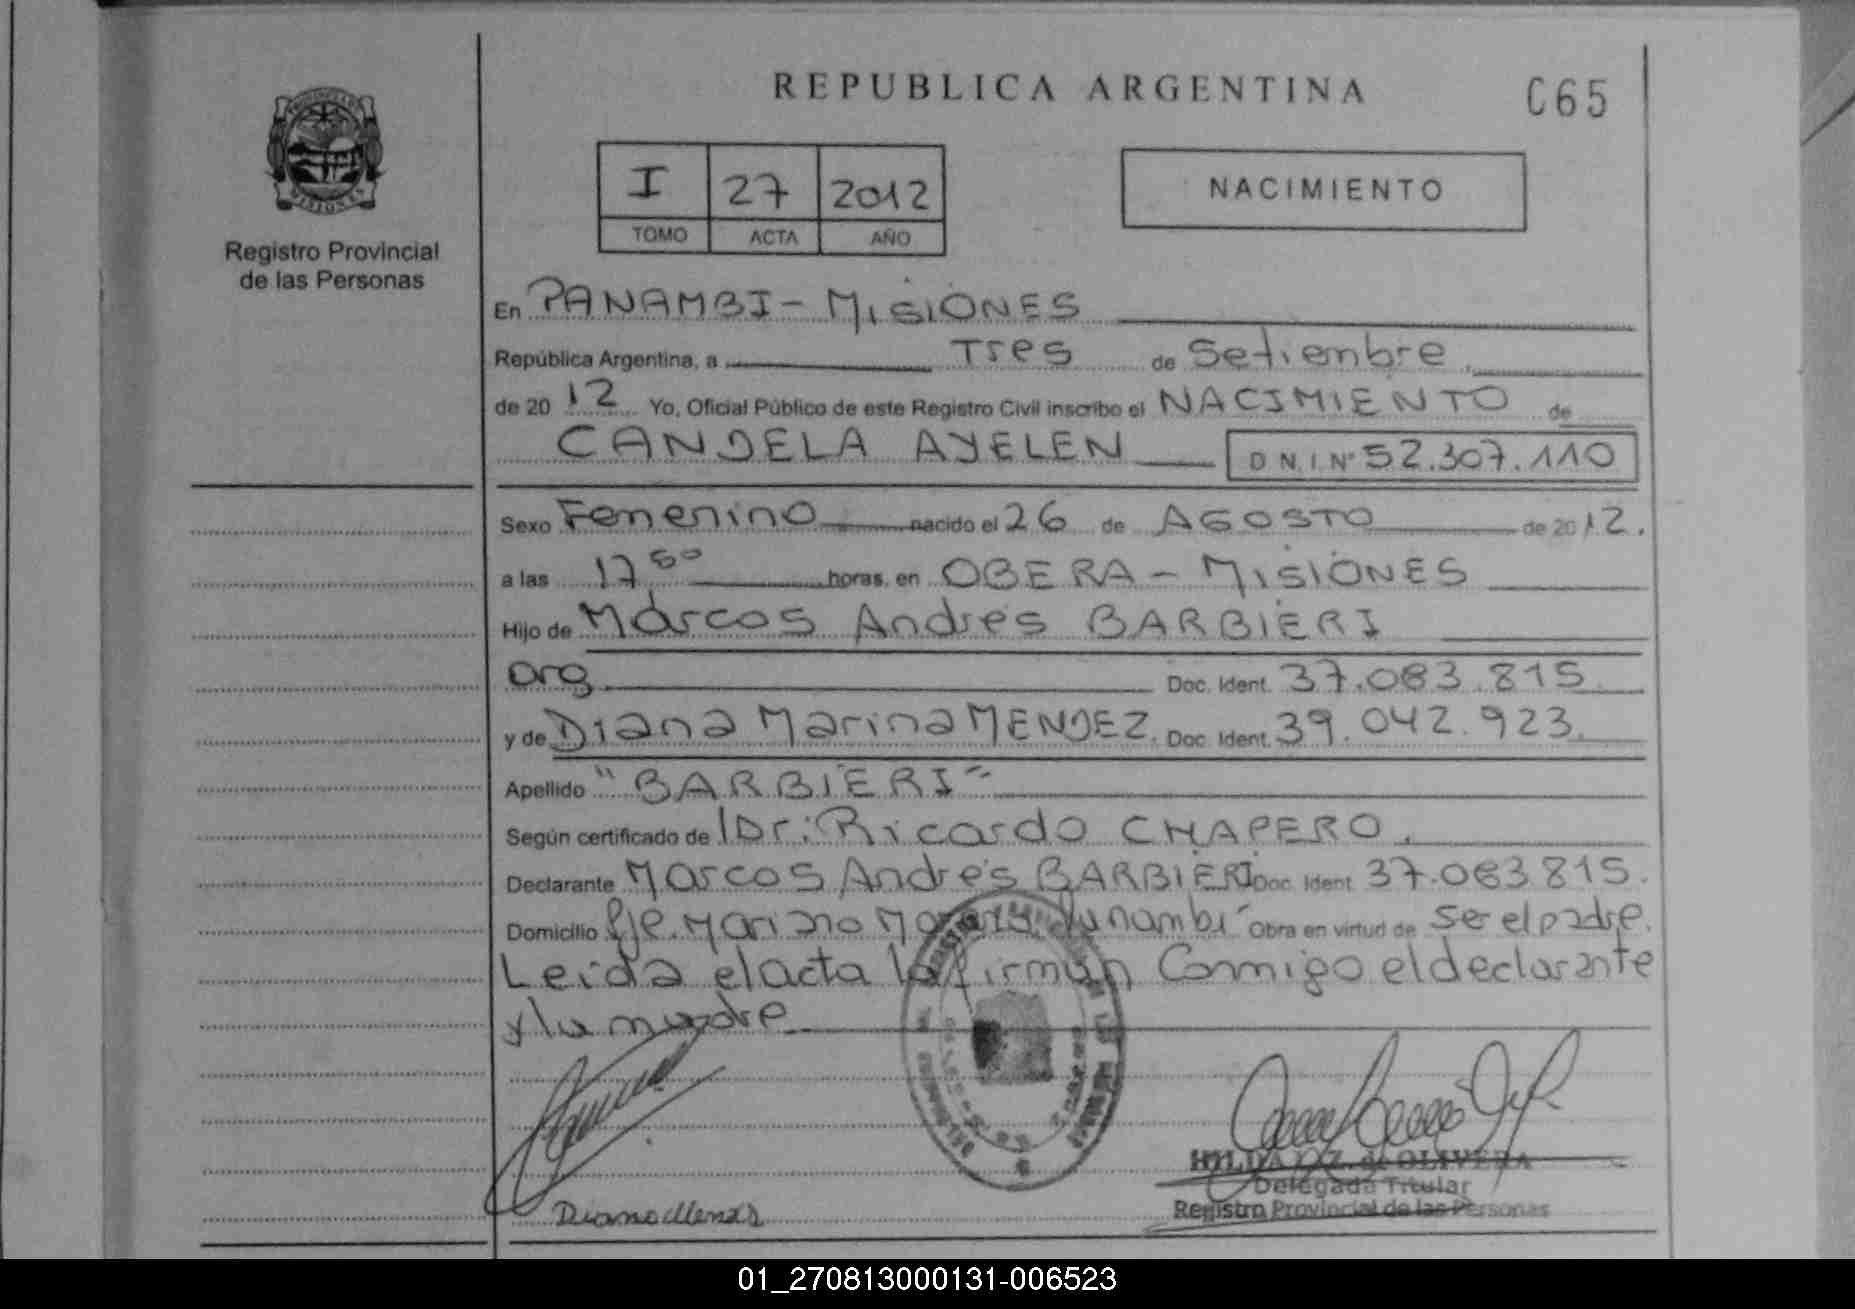 REPUBLICA ARGENTINA
C65
I 27 2012
TOMO ACTA AÑO
NACIMIENTO
Registro Provincial
de las Personas
En PANAMBI - MISIONES
República Argentina, a Tres de Setiembre
de 20 12 Yo, Oficial Público de este Registro Civil inscribo el NACIMIENTO de
CANDELA AYELEN D N.I. Nº 52.307.110
Sexo Femenino nacido el 26 de AGOSTO de 2012.
a las 17 50 horas, en OBERA - MISIONES
Hijo de Marcos Andrés BARBIERI
arg Doc. Ident. 37.083.815
y de Diana Marina MENDEZ. Doc. Ident. 39.042.923.
Apellido "BARBIERI"
Según certificado de Dr: Ricardo CHAPERO.
Declarante Marcos Andrés BARBIERI Doc. Ident 37.083 815.
Domicilio Pje. Mariano Panambi Obra en virtud de ser el padre.
Leida el acta la firman Conmigo el declarante
y la madre
HILDA de OLIVERA
Delegada Titular
Registro Provincial de las Personas
01_270813000131-006523